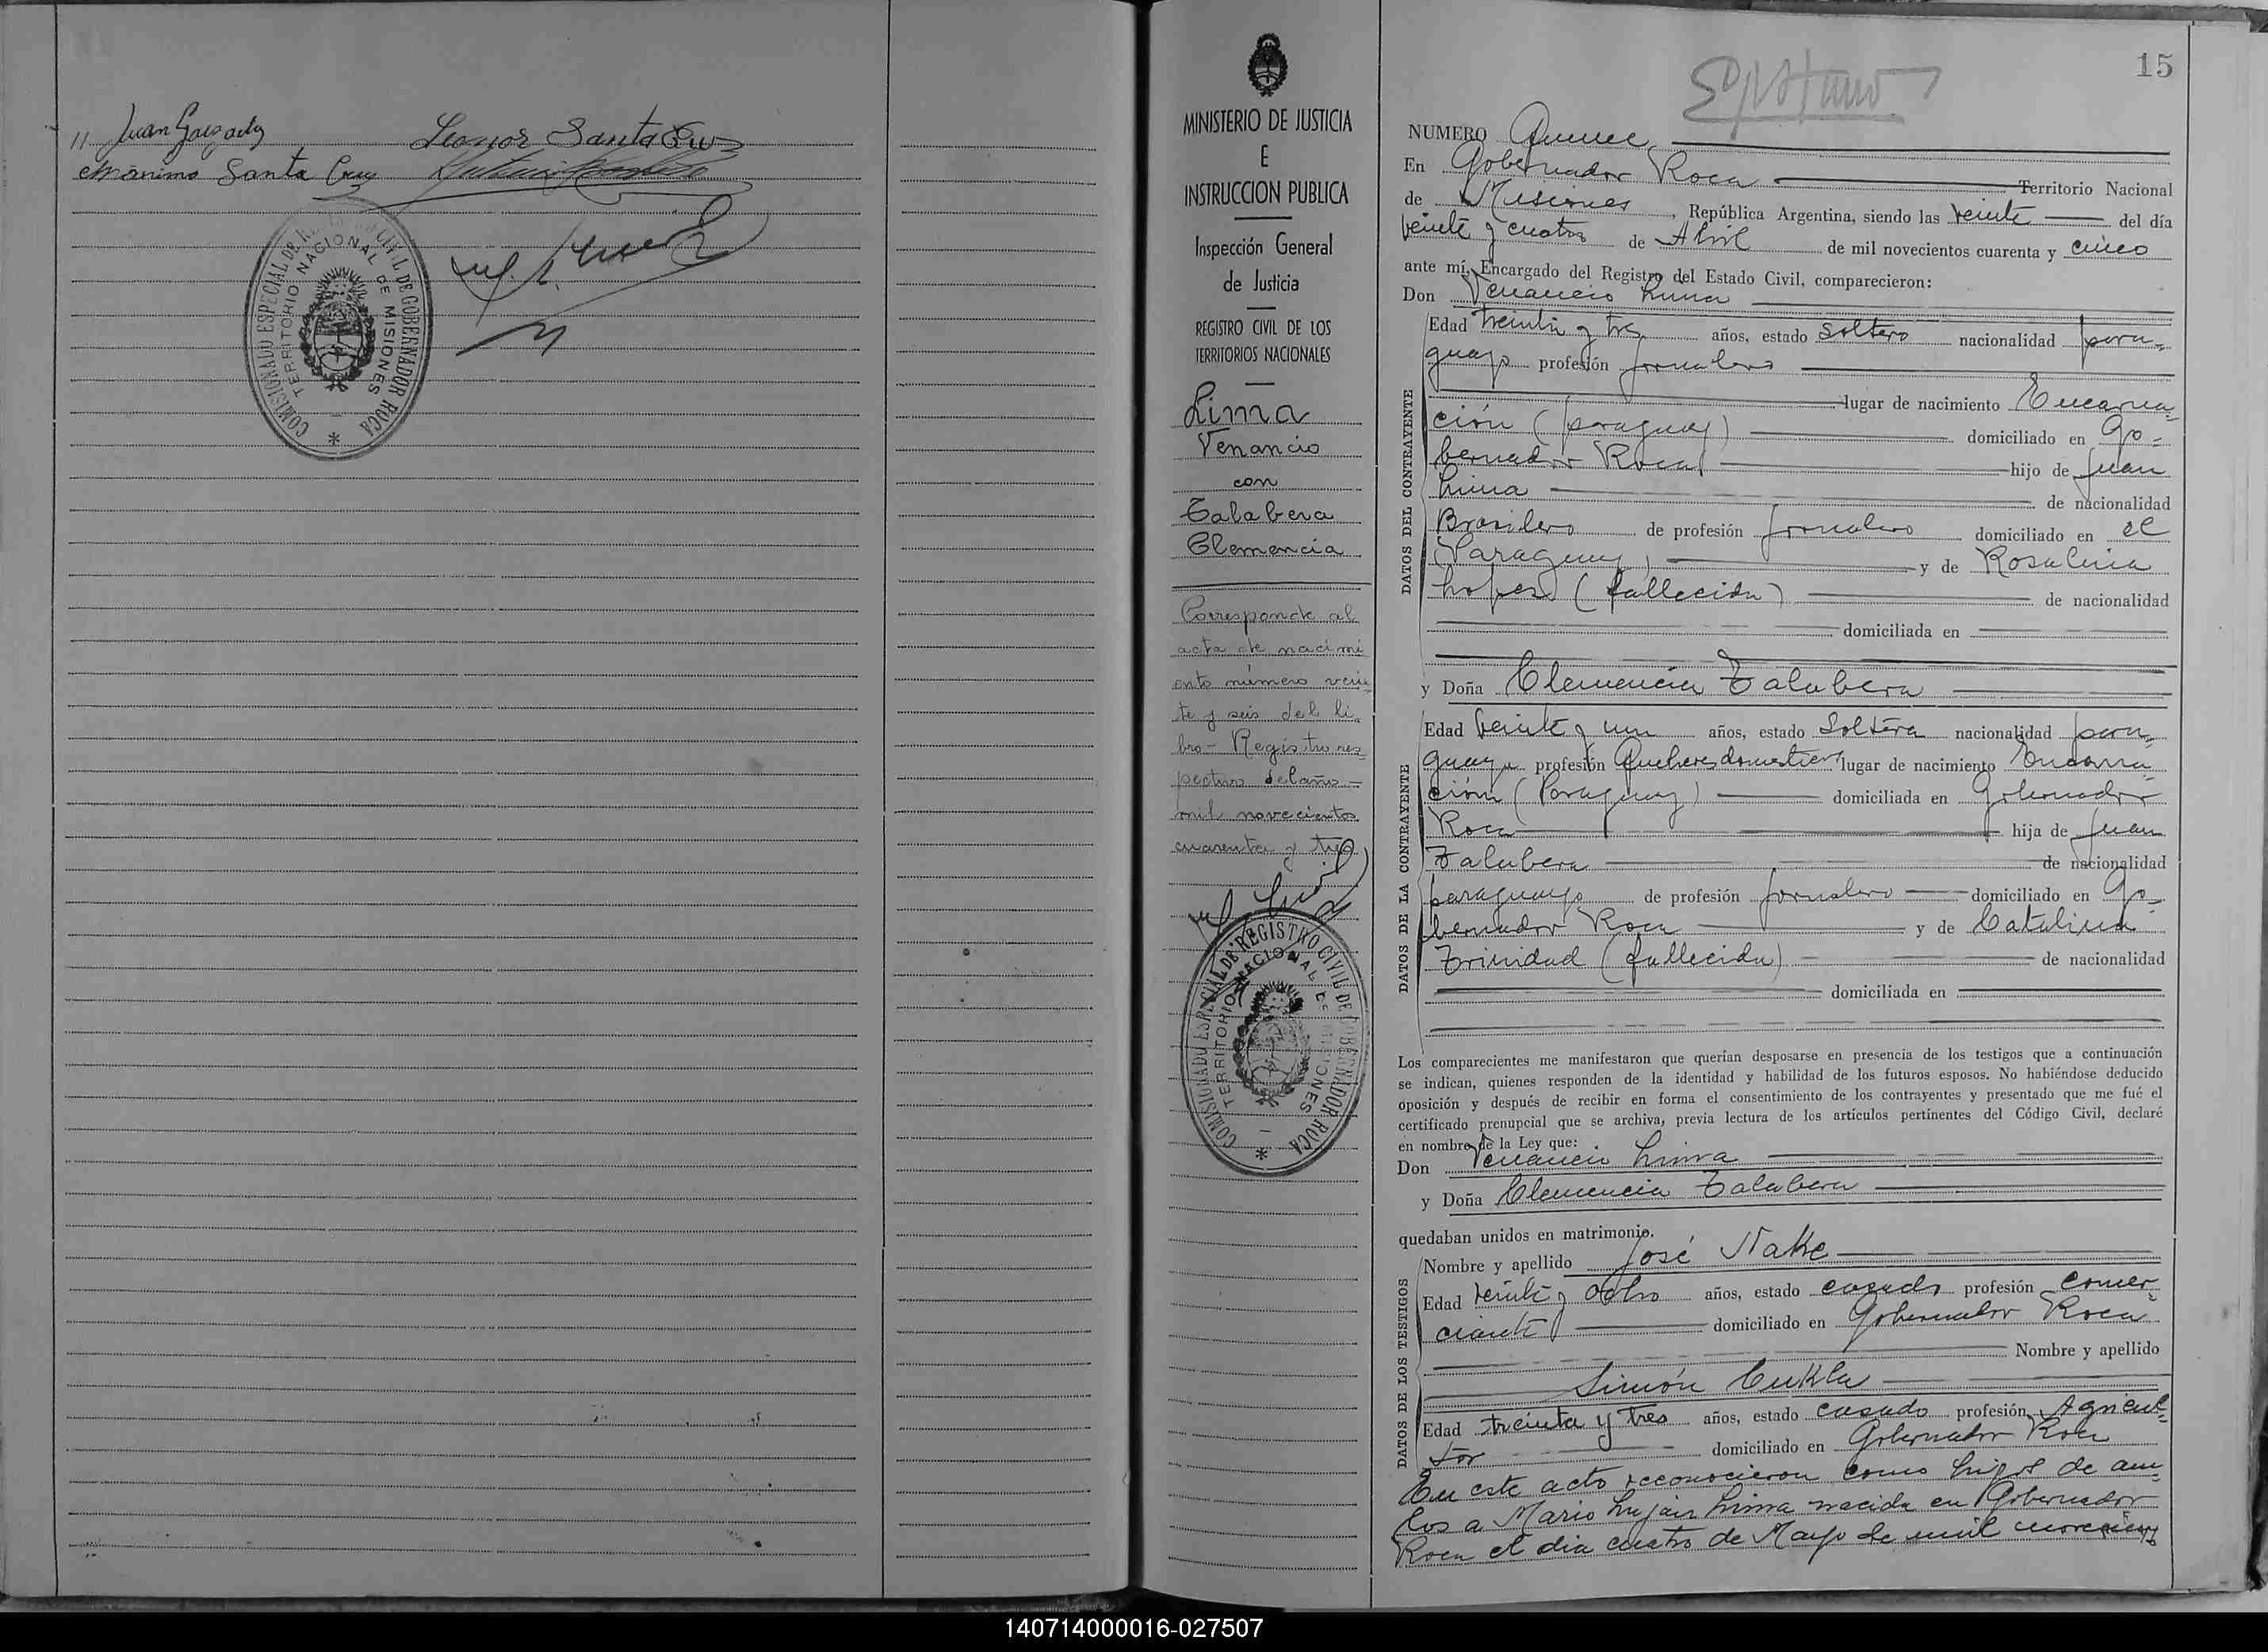 Juan
Leonor Santa Cruz
Máximo Santa Cruz
COMISIONADO ESPECIAL DE REGISTRO CIVIL DE GOBERNADOR ROCA
TERRITORIO NACIONAL DE MISIONES
MINISTERIO DE JUSTICIA
E
INSTRUCCION PUBLICA
Inspección General
de Justicia
REGISTRO CIVIL DE LOS
TERRITORIOS NACIONALES
Lima
Venancio
con
Talabera
Clemencia
Corresponde al
acta de nacimi
ento número vein
te y seis del li
bro - Registro res
pectivo del año
mil novecientos
cuarenta y tres
COMISIONADO ESPECIAL DE REGISTRO CIVIL DE GOBERNADOR ROCA
TERRITORIO NACIONAL DE MISIONES
15
NUMERO Quince
En Gobernador Roca Territorio Nacional
de Misiones, República Argentina, siendo las veinte del día
veinte y cuatro de Abril de mil novecientos cuarenta y cinco
ante mí, Encargado del Registro del Estado Civil, comparecieron:
Don Venancio Lima
DATOS DEL CONTRAYENTE
Edad treinta y tres años, estado soltero nacionalidad para-
guayo profesión jornalero
lugar de nacimiento Encarna-
ción (paraguay) domiciliado en Go-
bernador Roca hijo de Juan
Lima de nacionalidad
Brasilero de profesión jornalero domiciliado en el
(Paraguay) y de Rosalina
Lopes (fallecida) de nacionalidad
domiciliada en
y Doña Clemencia Talabera
DATOS DE LA CONTRAYENTE
Edad veinte y un años, estado Soltera nacionalidad para-
guaya profesión Queheres domestico lugar de nacimiento Encarna-
ción (Paraguay) domiciliada en Gobernador
Roca hija de Juan
Talabera de nacionalidad
paraguayo de profesión jornalero domiciliado en Go-
bernador Roca y de Catalina
Trinidad (fallecida) de nacionalidad
domiciliada en
Los comparecientes me manifestaron que querían desposarse en presencia de los testigos que a continuación
se indican, quienes responden de la identidad y habilidad de los futuros esposos. No habiéndose deducido
oposición y después de recibir en forma el consentimiento de los contrayentes y presentado que me fué el
certificado prenupcial que se archiva, previa lectura de los artículos pertinentes del Código Civil, declaré
en nombre de la Ley que:
Don Venancio Lima
y Doña Clemencia Talabera
quedaban unidos en matrimonio.
DATOS DE LOS TESTIGOS
Nombre y apellido José
Edad veinte y ocho años, estado casado profesión comer-
ciante domiciliado en Gobernador Roca
Nombre y apellido
Simón Cukla
Edad treinta y tres años, estado casado profesión Agricul-
tor domiciliado en Gobernador Roca
En este acto reconocieron como hijos de am-
bos a Mario Lujan Lima nacida en Gobernador
Roca el dia cuatro de Mayo de mil novecien
140714000016-027507